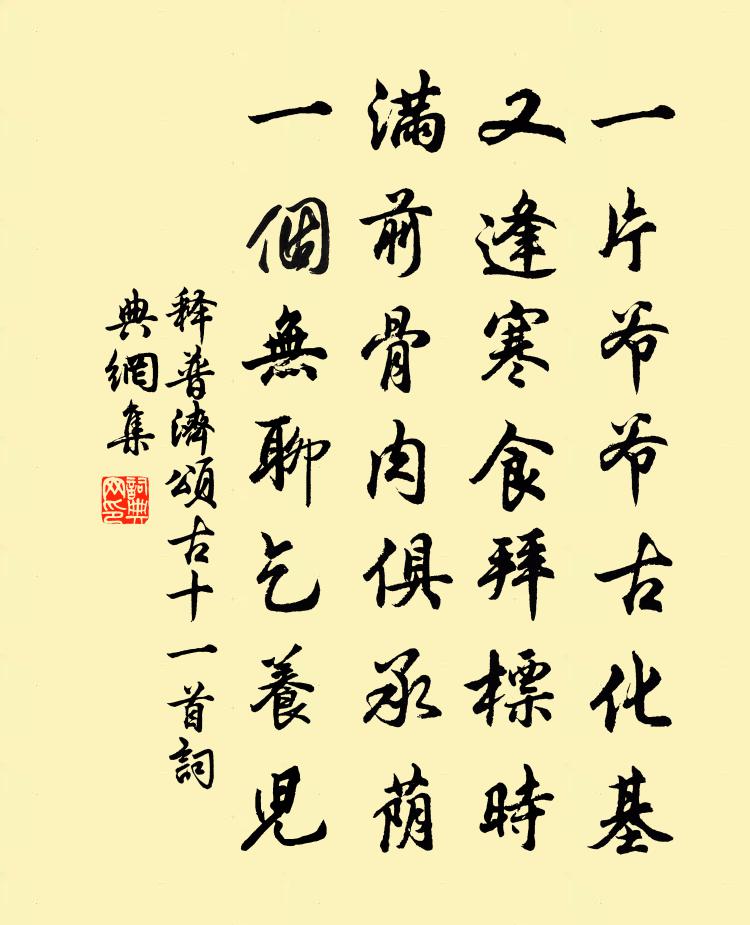 一片爷爷古化基
又逢寒食拜標時
滿前骨肉俱承荫
一個無聊乞養兒
释普濟頌古十一首詞
典網集
詞典网印